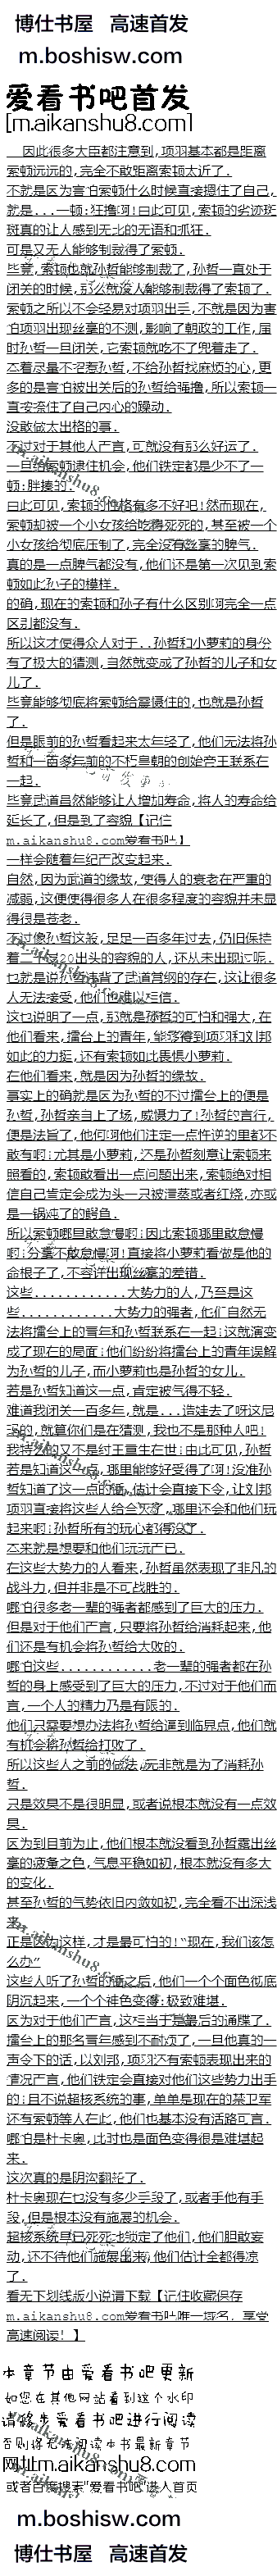 博仕书屋 高速首发
m.boshisw.com
爱看书吧首发
[m.aikanshu8.com]
因此很多大臣都注意到,项羽基本都是距离
索顿远远的,完全不敢距离索顿太近了.
不就是因为害怕索顿什么时候直接摁住了自己,
就是...一顿:狂撸啊!由此可见,索顿的劣迹斑
斑真的让人感到无比的无语和抓狂.
可是又无人能够制裁得了索顿.
毕竟,索顿也就孙哲能够制裁了,孙哲一直处于
闭关的时候,那么就没人能够制裁得了索顿了.
索顿之所以不会轻易对项羽出手,不就是因为害
怕项羽出现丝毫的不测,影响了朝政的工作,届
时孙哲一旦闭关,它索顿就吃不了兜着走了.
本着尽量不招惹孙哲,不给孙哲找麻烦的心,更
多的是害怕被出关后的孙哲给强撸,所以索顿一
直按捺住了自己内心的躁动.
没敢做太出格的事.
不过对于其他人而言,可就没有那么好运了.
一旦给索顿逮住机会,他们铁定都是少不了一
顿:胖揍的.
由此可见,索顿的性格有多不好吧!然而现在,
索顿却被一个小女孩给吃得死死的,甚至被一个
小女孩给彻底压制了,完全没有丝毫的脾气.
真的是一点脾气都没有,他们还是第一次见到索
顿如此孙子的模样.
的确,现在的索顿和孙子有什么区别啊完全一点
区别都没有.
所以这才使得众人对于..孙哲和小萝莉的身份
有了极大的猜测,当然就变成了孙哲的儿子和女
儿了.
毕竟能够彻底将索顿给震慑住的,也就是孙哲
了.
但是眼前的孙哲看起来太年轻了,他们无法将孙
哲和一百多年前的不朽皇朝的创始帝王联系在
一起.
毕竟武道虽然能够让人增加寿命,将人的寿命给
延长了,但是到了容貌【记住
m.aikanshu8.com爱看书吧】
一样会随着年纪而改变起来.
自然,因为武道的缘故,使得人的衰老在严重的
减弱,这便使得很多人在很多程度的容貌并未显
得很是苍老.
不过像孙哲这般,足足一百多年过去,仍旧保持
着二十20出头的容貌的人,还从未出现过呢.
也就是说孙哲违背了武道常纲的存在,这让很多
人无法接受,他们也难以置信.
这也说明了一点,那就是孙哲的可怕和强大,在
他们看来,擂台上的青年,能够得到项羽和刘邦
如此的力挺,还有索顿如此畏惧小萝莉.
在他们看来,就是因为孙哲的缘故.
事实上的确就是因为孙哲的不过擂台上的便是
孙哲,孙哲亲自上了场,威慑力了!孙哲的言行,
便是法旨了,他何啊他们注定一点忤逆的里都不
敢有啊:尤其是小萝莉,还是孙哲刻意让索顿来
照看的,索顿敢看出一点问题出来,索顿绝对相
信自己肯定会成为头一只被清蒸或者红烧,亦或
是一锅炖了的鳄鱼.
所以索顿哪里敢怠慢啊:因此索顿哪里敢怠慢
啊:分毫不敢怠慢啊:直接将小萝莉看做是他的
命根子了,不容许出现丝毫的差错.
这些............大势力的人,乃至是这
些............大势力的强者,他们自然无
法将擂台上的青年和孙哲联系在一起:这就演变
成了现在的局面:他们纷纷将擂台上的青年误解
为孙哲的儿子,而小萝莉也是孙哲的女儿.
若是孙哲知道这一点,肯定被气得不轻.
难道我闭关一百多年,就是...造娃去了呀这尼
玛的,就算你们是在猜测,我也不是那种人吧!
我孙哲的又不是纣王重生在世:由此可见,孙哲
若是知道这一点,哪里能够好受得了啊!没准孙
哲知道了这一点的话,估计会直接下令,让刘邦
项羽直接将这些人给全灭了,哪里还会和他们玩
起来啊:孙哲所有的玩心都得没了.
本来就是想要和他们玩玩而已.
在这些大势力的人看来,孙哲虽然表现了非凡的
战斗力,但并非是不可战胜的.
哪怕很多老一辈的强者都感到了巨大的压力.
但是对于他们而言,只要将孙哲给消耗起来,他
们还是有机会将孙哲给大败的.
哪怕这些............老一辈的强者都在孙
哲的身上感受到了巨大的压力,不过对于他们而
言,一个人的精力乃是有限的.
他们只需要想办法将孙哲给逼到临界点,他们就
有机会将孙哲给打败了.
所以这些人之前的做法,无非就是为了消耗孙
哲.
只是效果不是很明显,或者说根本就没有一点效
果.
因为到目前为止,他们根本就没看到孙哲露出丝
毫的疲惫之色,气息平稳如初,根本就没有多大
的变化.
甚至孙哲的气势依旧内敛如初,完全看不出深浅
来.
正是因为这样,才是最可怕的!“现在,我们该怎
么办”
这些人听了孙哲的话之后,他们一个个面色彻底
阴沉起来,一个个神色变得:极致难堪.
因为对于他们而言,这相当于是最后的通牒了.
擂台上的那名青年感到不耐烦了,一旦他真的一
声令下的话,以刘邦,项羽还有索顿表现出来的
情况而言,他们铁定会直接对他们这些势力出手
的:且不说超核系统的事,单单是现在的禁卫军
还有索顿等人在此,他们也基本没有活路可言.
哪怕是杜卡奥,此时也是面色变得很是难堪起
来.
这次真的是阴沟翻船了.
杜卡奥现在也没有多少手段了,或者手他有手
段,但是根本没有施展的机会.
超核系统早已死死地锁定了他们,他们胆敢妄
动,还不待他们施展出来,他们估计全都得凉
了.
看无下划线版小说请下载【记住收藏保存
m.aikanshu8.com爱看书吧唯一域名，享受
高速阅读！】
本章节由爱看书吧更新
如您在其他网站看到这个水印
请移步爱看书吧进行阅读
否则将无法阅读本书最新章节
网址m.aikanshu8.com
或者百度搜索"爱看书吧"进入首页
m.boshisw.com
博仕书屋 高速首发